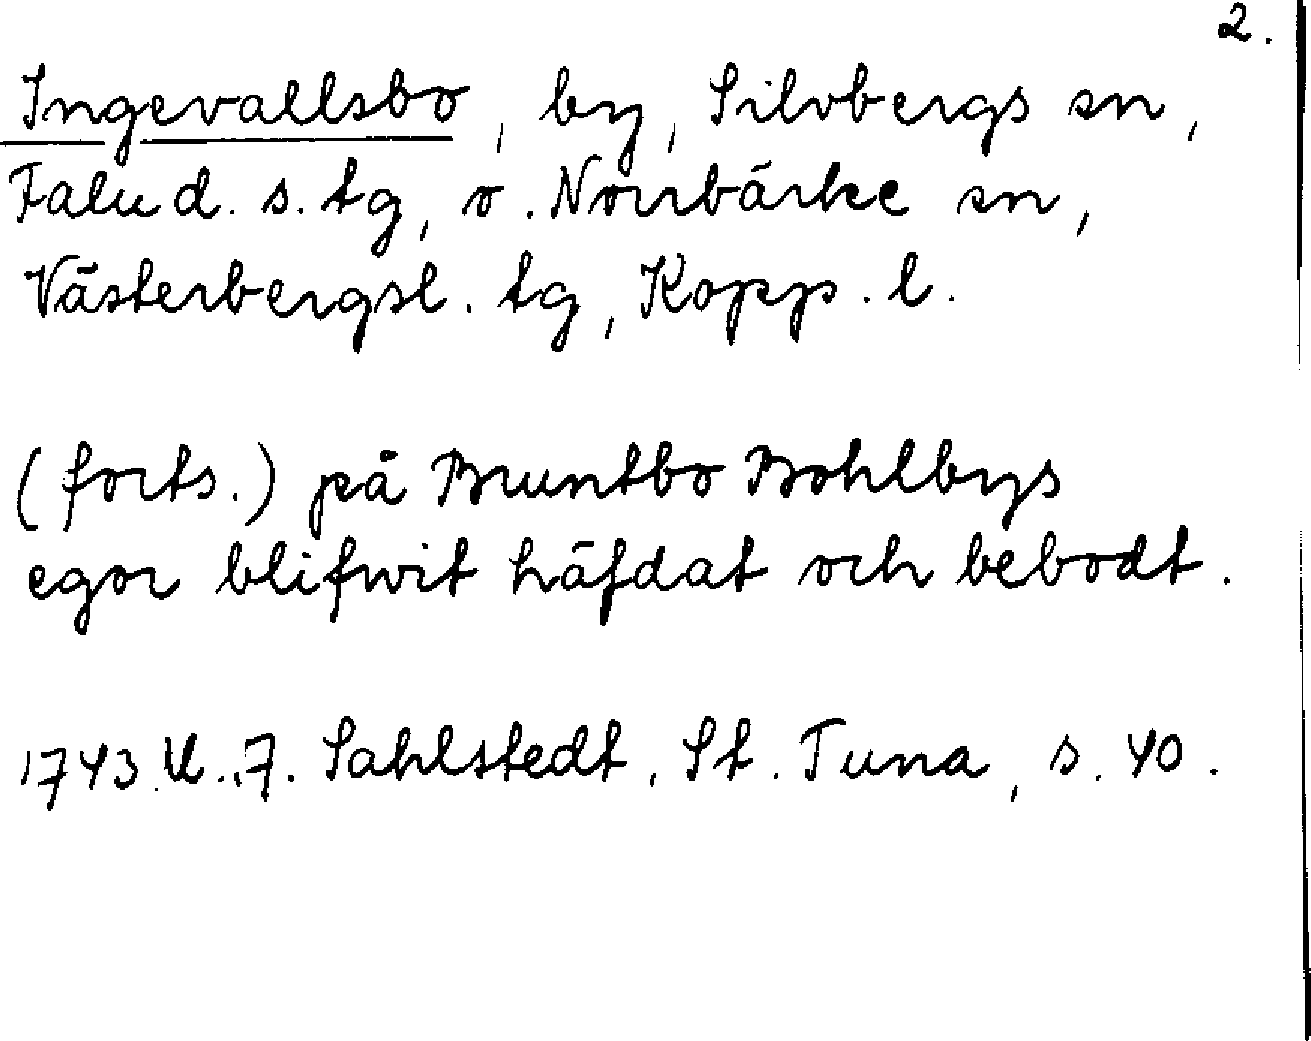 2.
Ingevallsbo, by, Silvbergs sn,
Falu d. s. tg, o. Norrbärke sn,
Västerbergsl. tg, Kopp. l.
(forts.) på Bruntbo Bohlbys
egor blifwit häfdat och bebodt.
1743. U. 7. Sahlstedt, St. Tuna, s. 40.